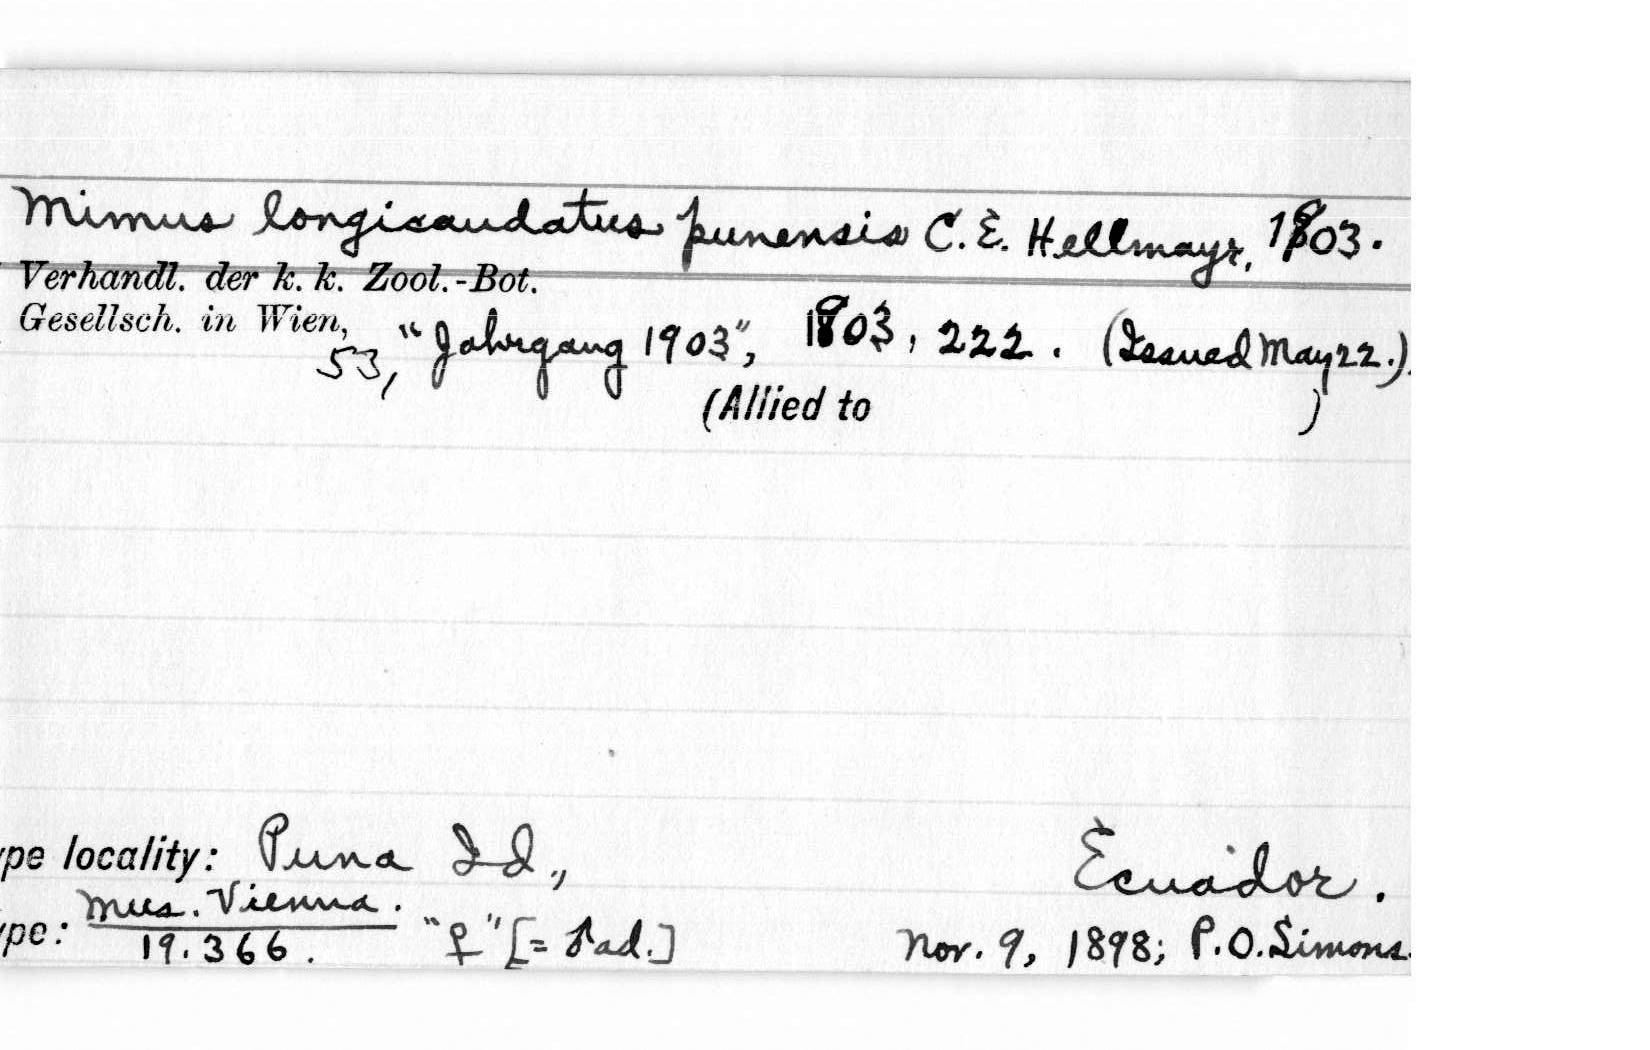 Mimus longicaudatus punensis C. E. Hellmayr, 1903.
Verhandl. der k. k. Zool.-Bot.
Gesellsch. in Wien,
53, "Jahrgang 1903", 1903, 222. (Issued May 22.)
(Allied to )
ype locality: Puna Id., Ecuador.
ype: Mus. Vienna. 19.366. "♀" [= ♂ ad.] Nov. 9, 1898; P. O. Simons.